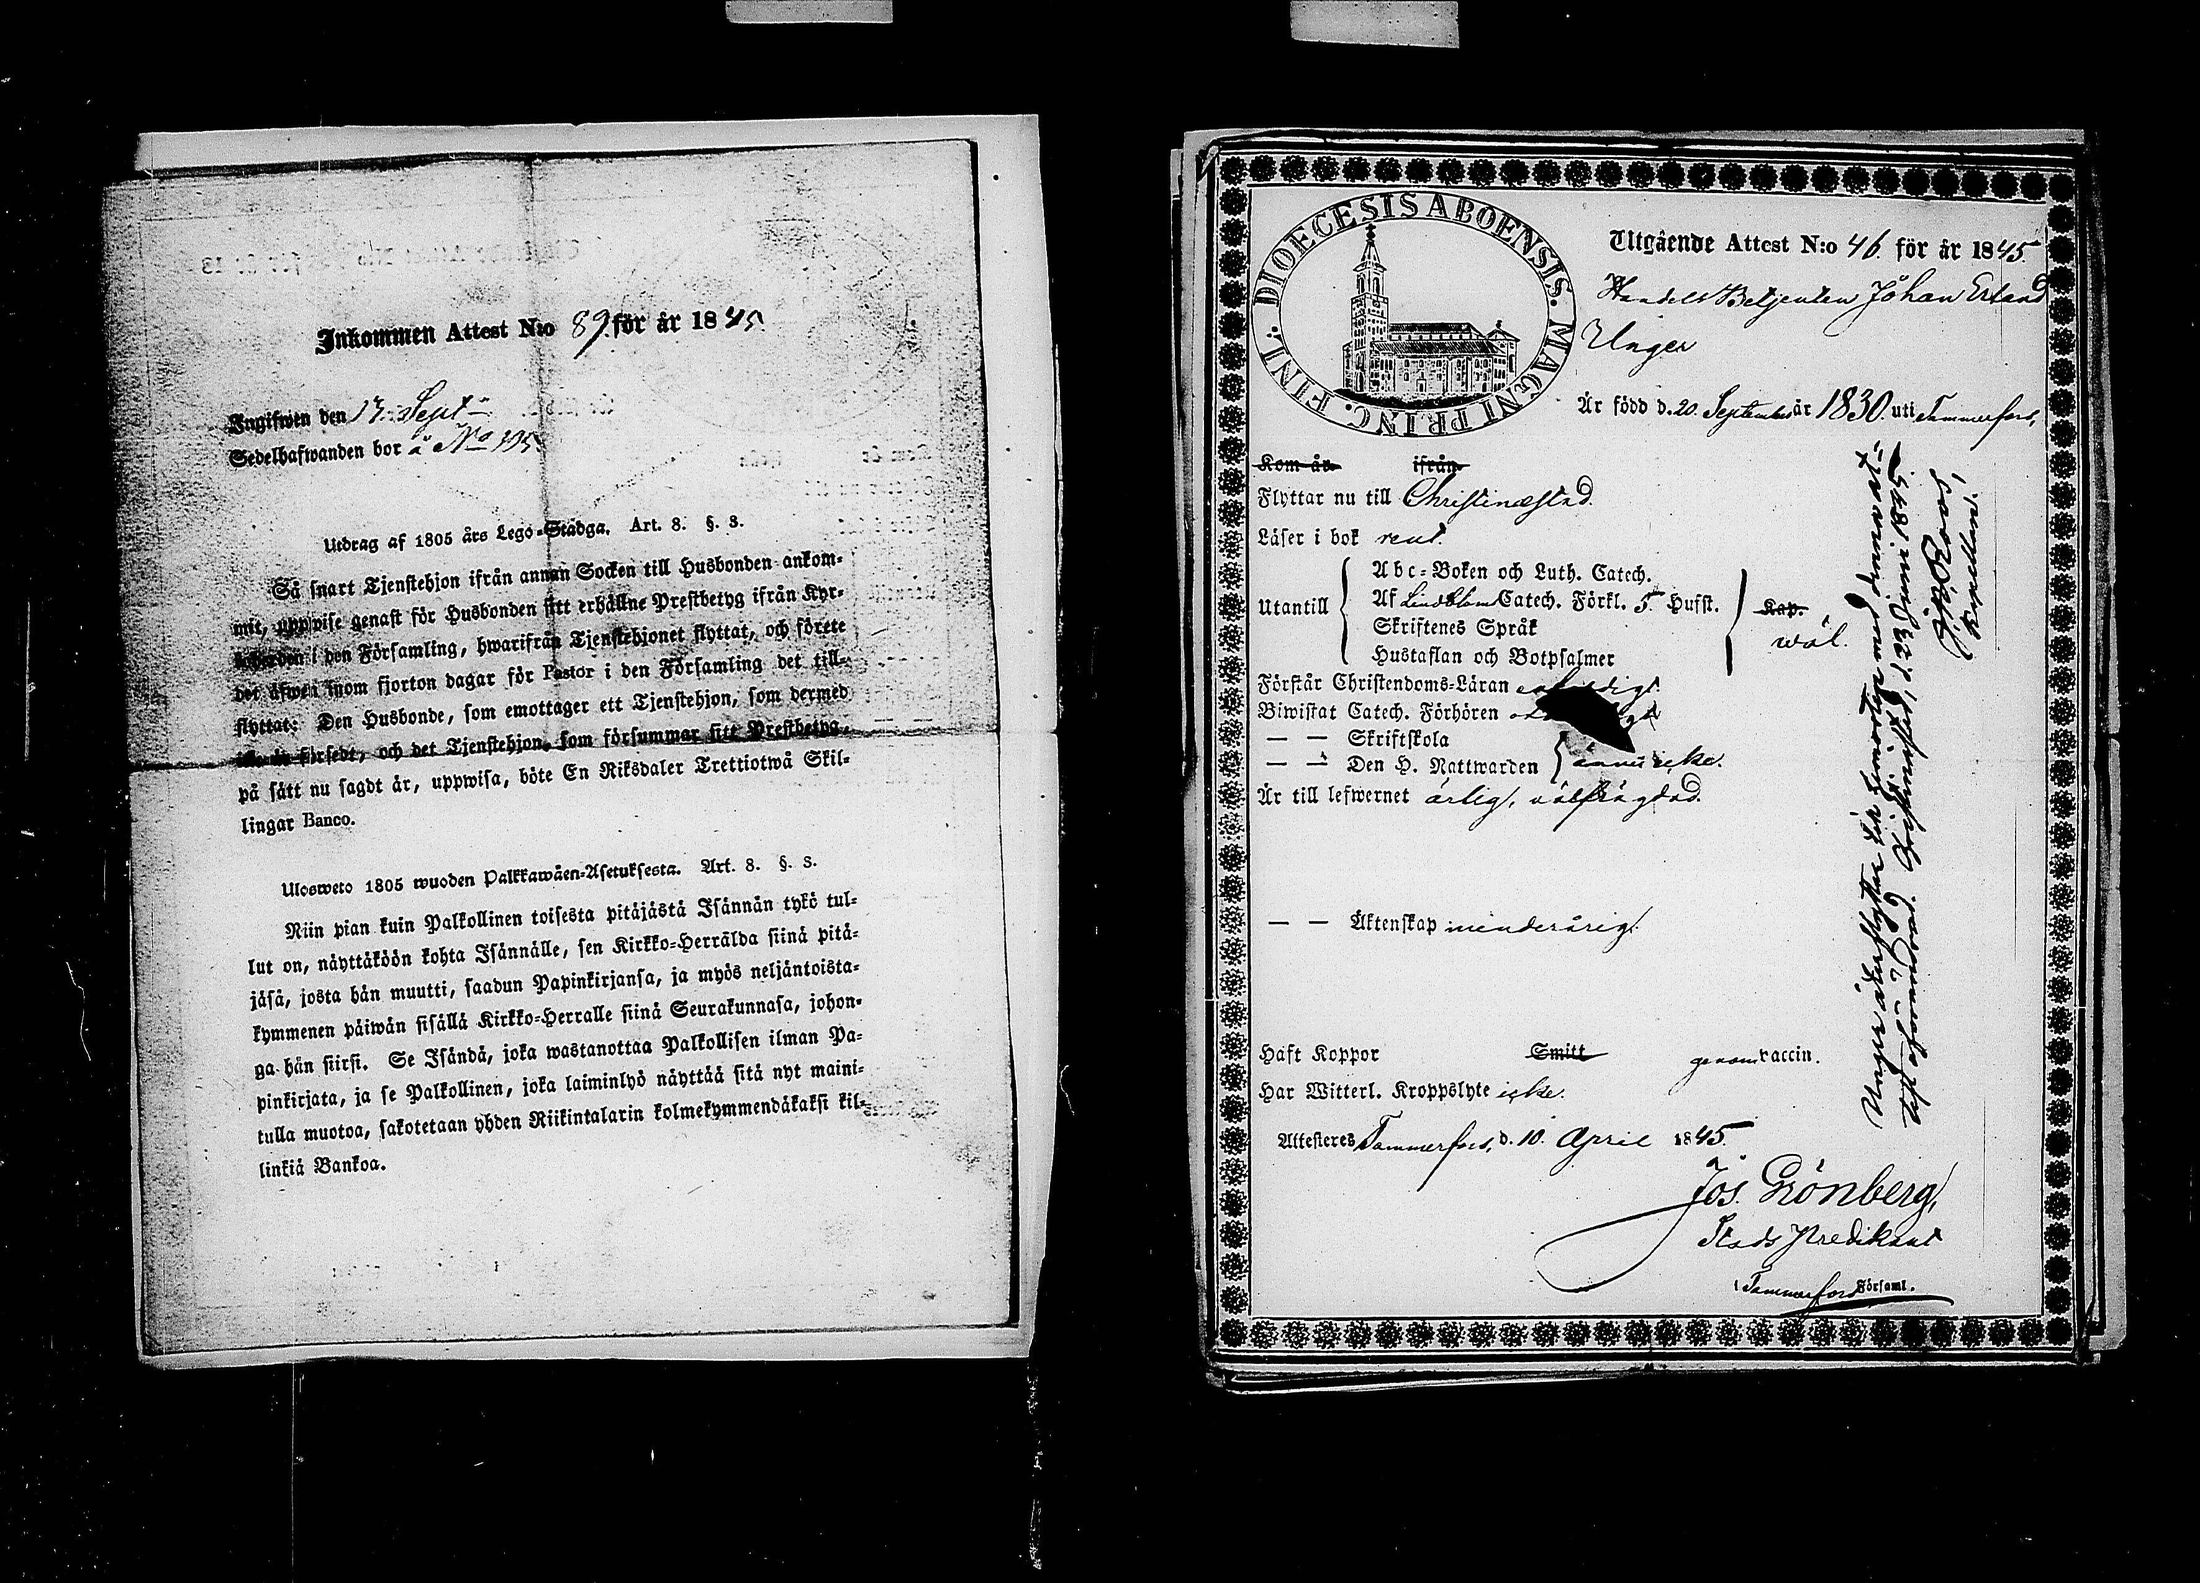 Inkommen Attest N:o 89. för år 1845.
Ingifwen den 13. Sept.
Sedelhafwanden bor å No 105
Utdrag af 1805 års Lego-Stadga. Art. 8. §. 3.
Så snart Tjenstehjon ifrån annan Socken till Husbonden ankom-
mit, uppwise genast för Husbonden sitt erhållne Prestbetyg ifrån Kyr-
i den Församling, hwarifrån Tjenstehjonet flyttat, och förete
det äfwen inom fjorton dagar för Pastor i den Församling det till-
flyttat: Den Husbonde, som emottager ett Tjenstehjon, som dermed
försedt, och det Tjenstehjon, som försummar sitt Prestbetyg,
på sätt nu sagdt är, uppwisa, böte En Riksdaler Trettiotwå Skil-
lingar Banco.
Ulosweto 1805 wuoden Palkkawäen-Asetuksesta. Art. 8. §. 3.
Niin pian kuin Palkollinen toisesta pitäjästä Isännän tykö tul-
lut on, näyttäköön kohta Isännälle, sen Kirkko-Herralda siinä pitä-
jäsä, josta hän muutti, saadun Papinkirjansa, ja myös neljäntoista-
kymmenen päiwän sisällä Kirkko-Herralle siinä Seurakunnasa, johon-
ga hän siirsi. Se Isändä, joka wastanottaa Palkollisen ilman Pa-
pinkirjata, ja se Palkollinen, joka laiminlyö näyttää sitä nyt maini-
tulla muotoa, sakotetaan yhden Riikintalarin kolmekymmendäkaksi kil-
linkiä Bankoa.
DIOECESIS ABOENSIS. MAGNI PRINC. FINL:
Utgående Attest N:o 46. för år 1845.
Handels Betjenten Johan Erland
Unger
Är född d. 20. September år 1830. uti Tammerfors,
Kom år ifrån
Flyttar nu till Christinæstad.
Läser i bok rent.
Utantill
Abc-Boken och Luth. Catech.
Af Lindbloms Catech. Förkl. 5. Hufst.
Skriftenes Språk
Hustaflan och Botpsalmer
Kap.
wäl.
Förstår Christendoms-Läran
Biwistat Catech. Förhören
— — Skriftskola
— — Den H. Nattwarden ännu icke.
Är till lefwernet ärlig, välfrägdad.
— — Äktenskap minderårig.
Haft Koppor Smitt genom vaccin.
Har Witterl. Kroppslyte icke.
Attesteres Tammerfors, d. 10. April 1845.
Jos. Grönberg,
Stads Predikant
i Tammerfors Församl.